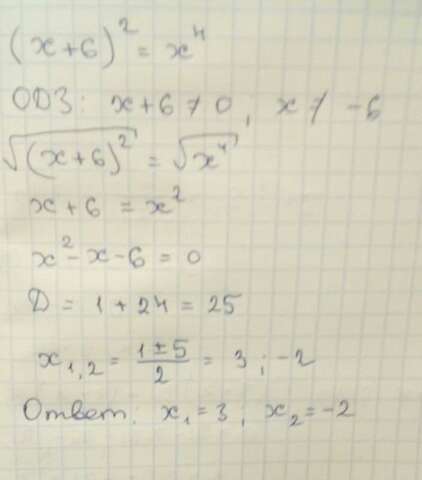 (x+6)² = x⁴
ОДЗ: x+6 ≠ 0, x ≠ -6
√(x+6)² = √x⁴
x+6 = x²
x² - x - 6 = 0
D = 1 + 24 = 25
x₁,₂ = (1±5)/2 = 3; -2
Ответ: x₁ = 3; x₂ = -2